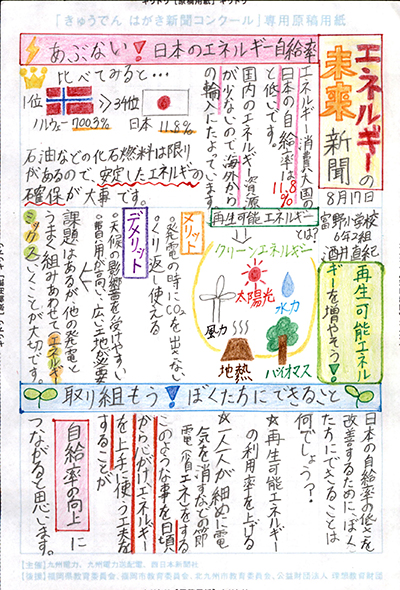 「きゅうでん はがき新聞コンクール」専用原稿用紙
エネルギーの
未来
新聞
8月17日
富野小学校
6年2組
酒井直紀
あぶない!日本のエネルギー自給率
比べてみると…
1位
≫
34位
ノルウェー 700.3%
日本 11.8%
エネルギー消費大国の
日本の自給率は11.8%
と低いです。
国内のエネルギー資源
が少ないので海外から
の輸入にたよっています。
石油などの化石燃料は限り
があるので、安定したエネルギーの
確保が大事です。
再生可能エネルギー
とは?
クリーンエネルギー
太陽光
水力
風力
地熱
バイオマス
メリット
・発電の時にCO₂を出さない
・くり返し使える
デメリット
・天候の影響を受けやすい
・費用が高い、広い土地が必要
課題はあるが他の発電と
うまく組みあわせて(エネルギー
ミックス)いくことが大切です。
再生可能エネル
ギーを増やそう!
取り組もう!ぼくたちにできること
日本の自給率の低さを
改善するために、ぼく
たちにできることは
何でしょう?
☆再生可能エネルギー
の利用率を上げる
☆一人一人が細めに電
気を消すなどの節
電(省エネ)をする
このような事を日頃
から心がけエネルギー
を上手に使う工夫を
することが
自給率の向上に
つながると思います。
【主催】九州電力、九州電力送配電、西日本新聞社
【後援】福岡県教育委員会、福岡市教育委員会、北九州市教育委員会、公益財団法人 理想教育財団